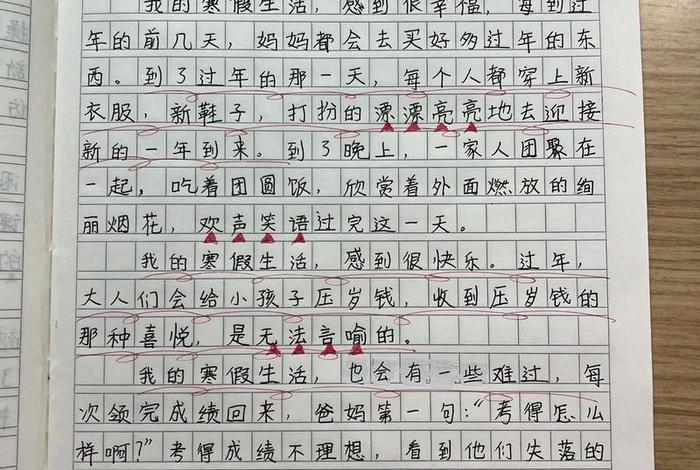 我的寒假生活，感到很幸福，每到过
年的前几天，妈妈都会去买好多过年的东
西。到了过年的那一天，每个人都穿上新
衣服，新鞋子，打扮的漂漂亮亮地去迎接
新的一年到来。到了晚上，一家人团聚在
一起，吃着团圆饭，欣赏着外面燃放的绚
丽烟花，欢声笑语过完这一天。
我的寒假生活，感到很快乐。过年，
大人们会给小孩子压岁钱，收到压岁钱的
那种喜悦，是无法言喻的。
我的寒假生活，也会有一些难过，每
次领完成绩回来，爸妈第一句：“考得怎么
样啊？”考得成绩不理想，看到他们失落的